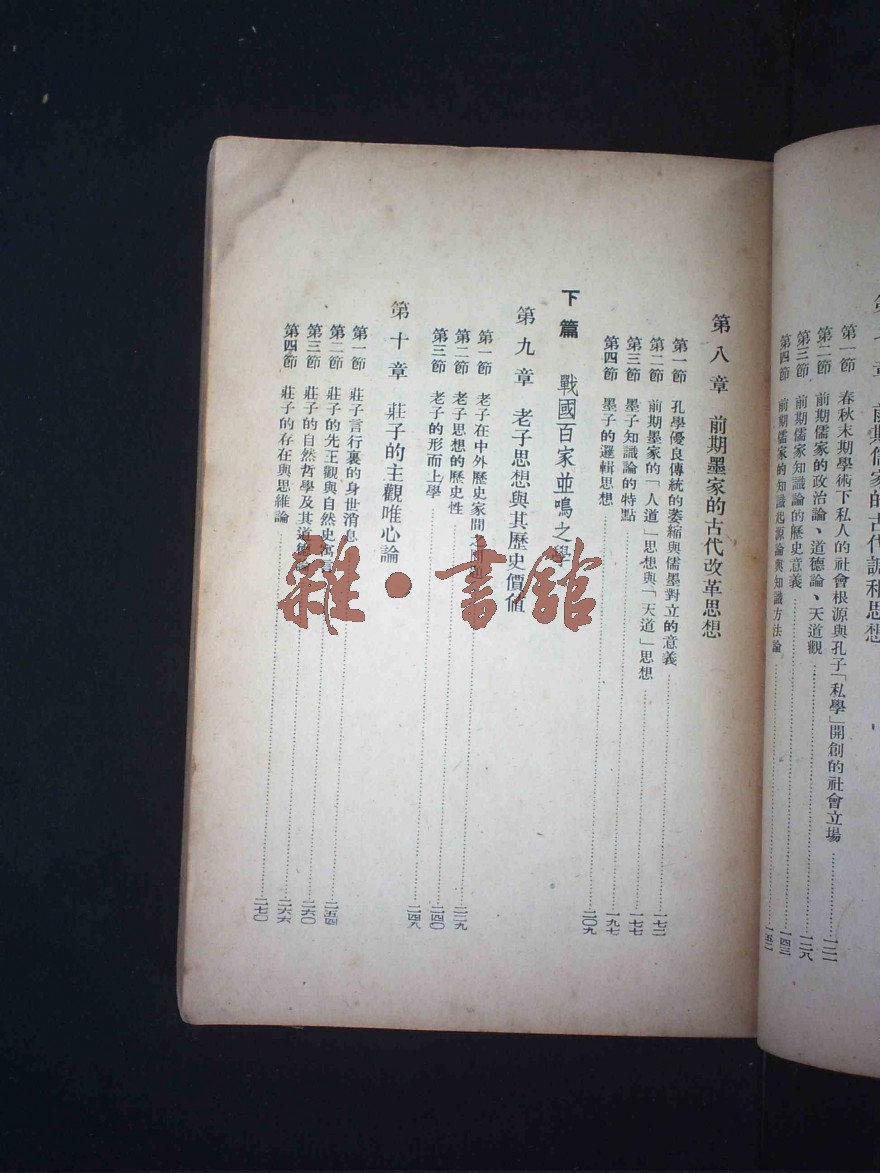 前期儒家的古代調和思想
第一節 春秋末期學術下私人的社會根源與孔子「私學」開創的社會立場 一二一
第二節 前期儒家的政治論、道德論、天道觀 一二八
第三節 前期儒家知識論的歷史意義 一四三
第四節 前期儒家的知識起源論與知識方法論 一五二
第八章 前期墨家的古代改革思想
第一節 孔學優良傳統的萎縮與儒墨對立的意義 一七二
第二節 前期墨家的「人道」思想與「天道」思想 一七七
第三節 墨子知識論的特點 一九七
第四節 墨子的邏輯思想 二〇九
下篇 戰國百家並鳴之學
第九章 老子思想與其歷史價值
第一節 老子在中外歷史家間之 二二九
第二節 老子思想的歷史性 二四〇
第三節 老子的形而上學 二四八
第十章 莊子的主觀唯心論
第一節 莊子言行裏的身世消息 二五四
第二節 莊子的先王觀與自然史寓言 二六〇
第三節 莊子的自然哲學及其道德論 二六六
第四節 莊子的存在與思維論 二七〇
雜·書館